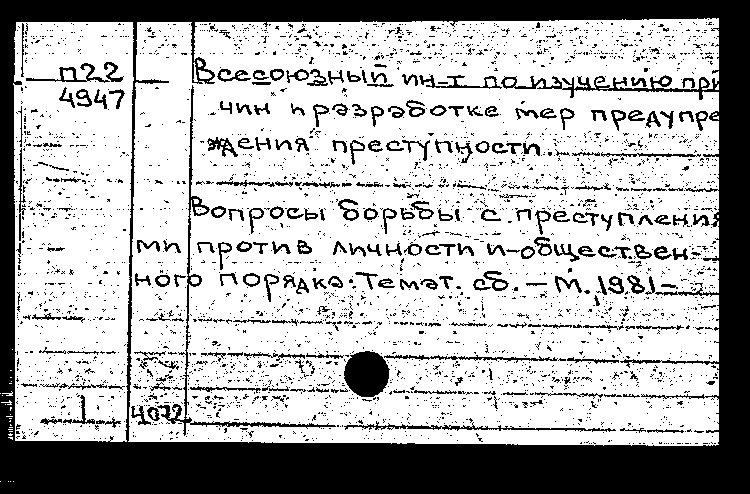 п22
4947
Всесоюзный ин-т по изучению при
чин и разработке мер предупре
ждения преступности.
Вопросы борьбы с преступления
ми против личности и общественн-
ного порядка. Темат. сб. — М. 1981-
1
4072